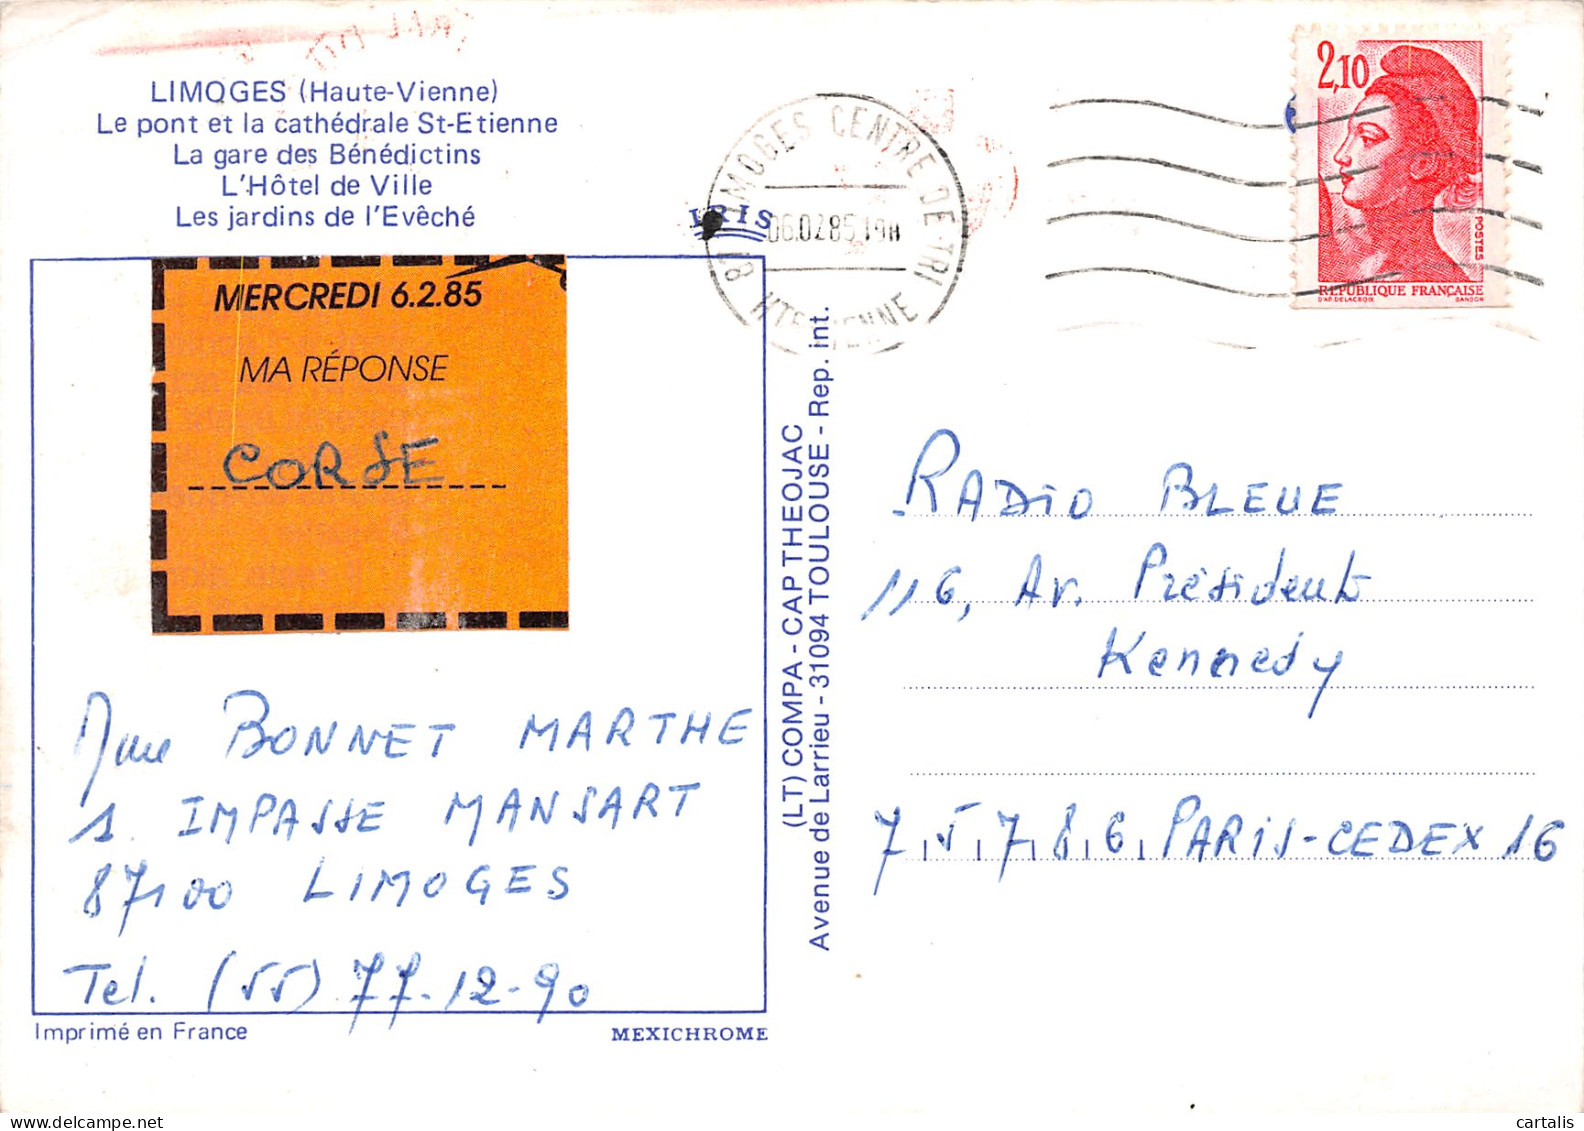 LIMOGES (Haute-Vienne)
Le pont et la cathédrale St-Etienne
La gare des Bénédictins
L'Hôtel de Ville
Les jardins de l'Evêché
IRIS
87 LIMOGES CENTRE DE TRI
06.02.85 19H
HTE VIENNE
2,10
POSTES
RÉPUBLIQUE FRANÇAISE
D'AP. DELACROIX GANDON
MERCREDI 6.2.85
MA RÉPONSE
CORSE
Mme BONNET MARTHE
1. IMPASSE MANSART
87100 LIMOGES
Tel. (55) 77-12-90
Imprimé en France
MEXICHROME
(LT) COMPA - CAP THEOJAC
Avenue de Larrieu - 31094 TOULOUSE - Rep. int.
RADIO BLEUE
116, Av. Président
Kennedy
75786 PARIS-CEDEX 16
cartalis